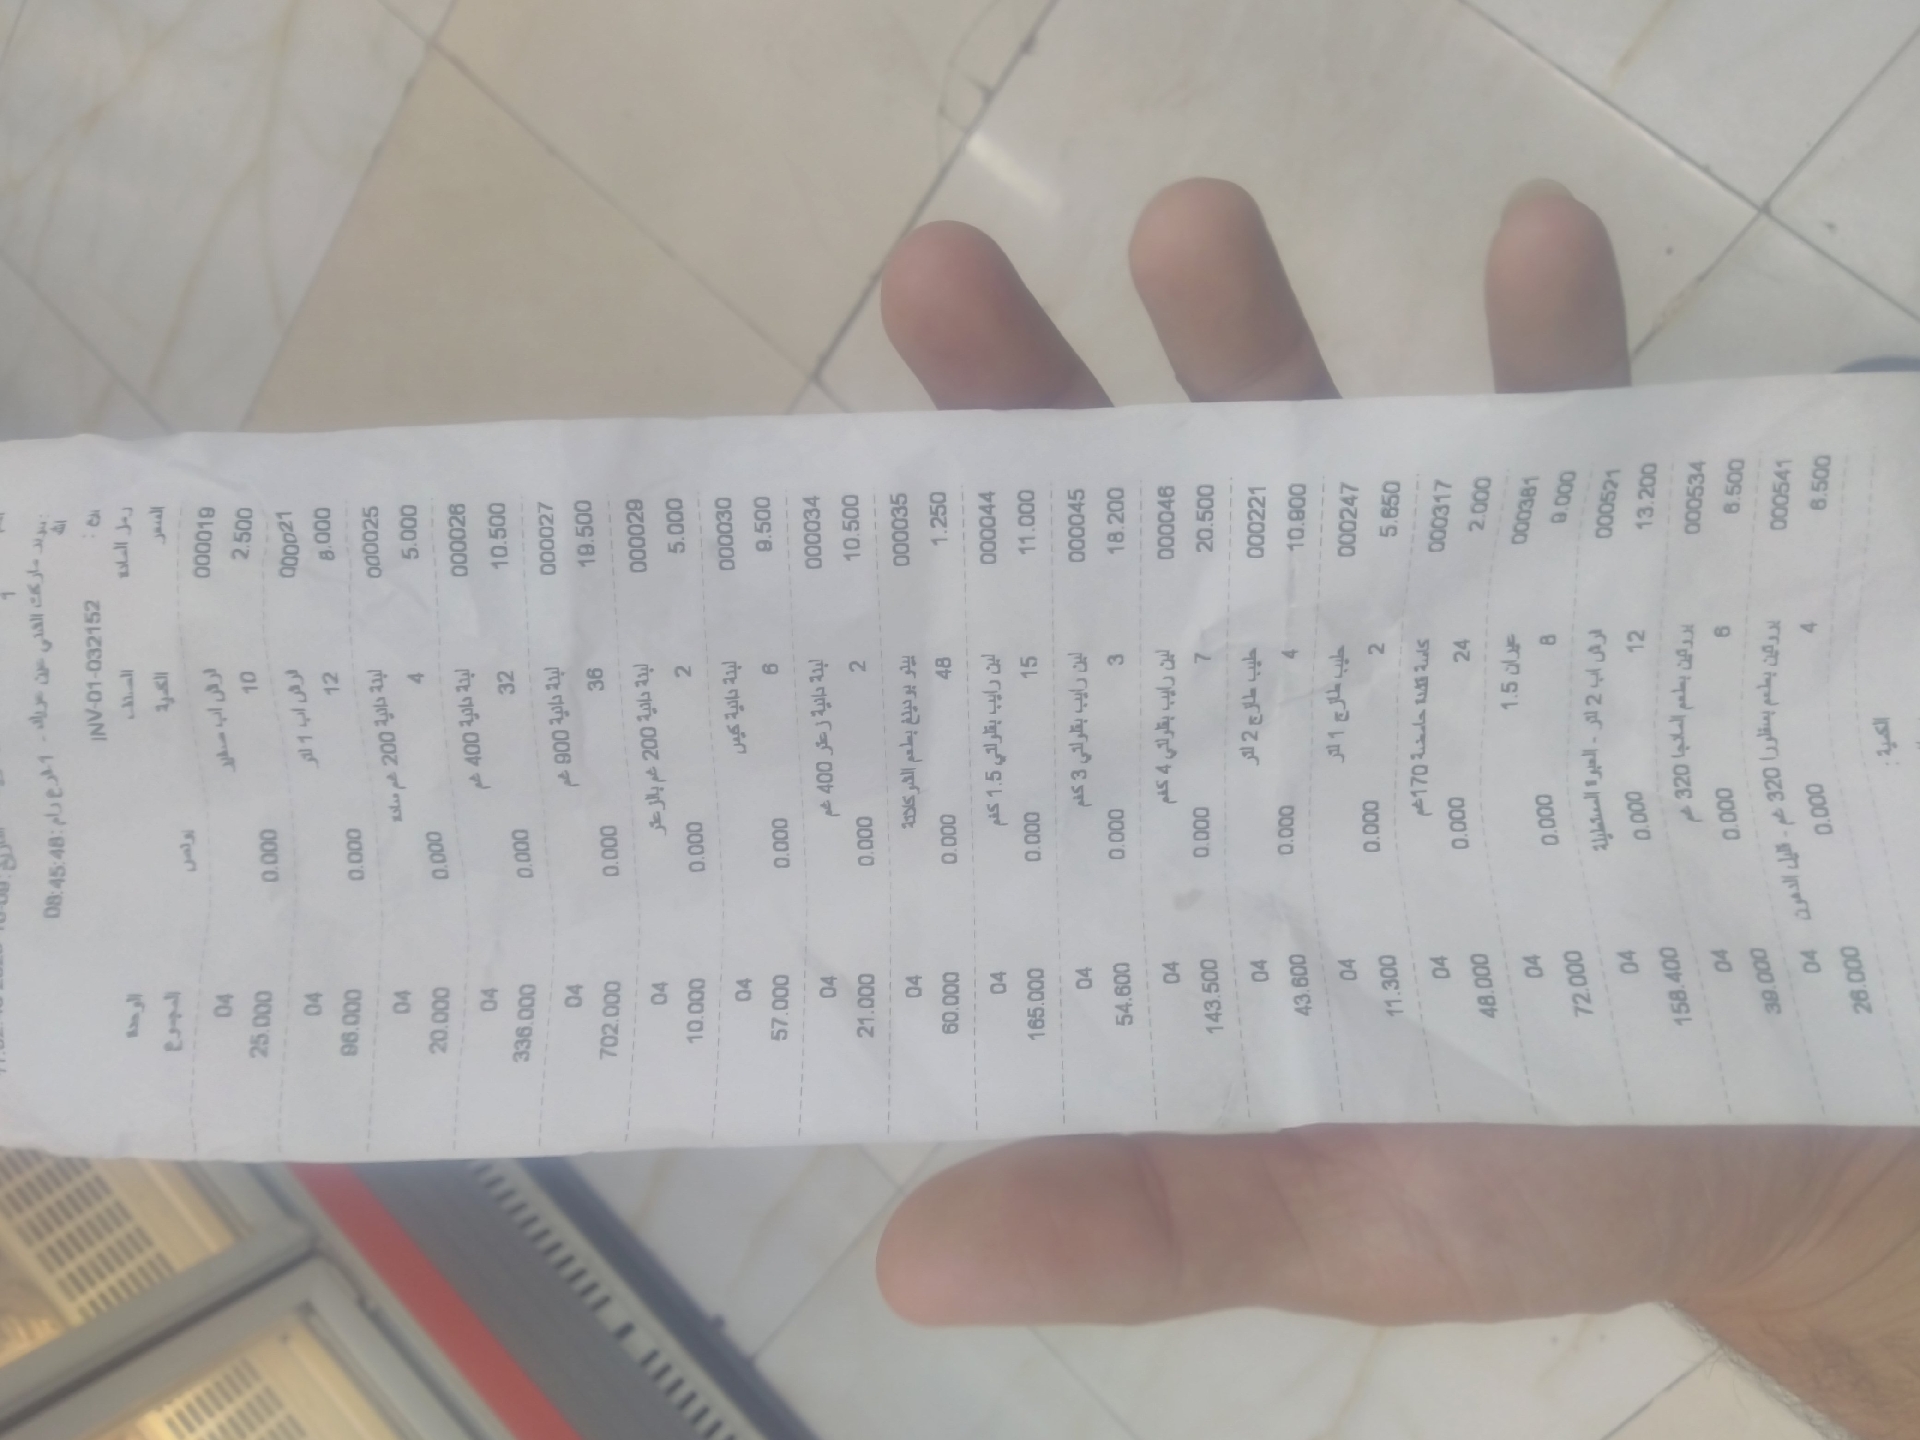 INV-01-032152
08:45:48
رمز المادة الصنف الوحدة
السعر الكمية بونص المجموع
000019 04
2.500 10 0.000 25.000
000021 04
8.000 12 0.000 96.000
000025 لبنة دانية 200 غم سادة 04
5.000 4 0.000 20.000
000026 لبنة دانية 400 غم 04
10.500 32 0.000 336.000
000027 لبنة دانية 900 غم 04
19.500 36 0.000 702.000
000029 لبنة دانية 200 غم بالزعتر 04
5.000 2 0.000 10.000
000030 لبنة دانية كيس 04
9.500 6 0.000 57.000
000034 لبنة دانية زعتر 400 غم 04
10.500 2 0.000 21.000
000035 04
1.250 48 0.000 60.000
000044 لبن رايب بقر لتي 1.5 كغم 04
11.000 15 0.000 165.000
000045 لبن رايب بقر لتي 3 كغم 04
18.200 3 0.000 54.600
000046 لبن رايب بقر لتي 4 كغم 04
20.500 7 0.000 143.500
000221 حليب طازج 2 لتر 04
10.900 4 0.000 43.600
000247 حليب طازج 1 لتر 04
5.650 2 0.000 11.300
000317 حامضة 170 غم 04
2.000 24 0.000 48.000
000381 عيران 1.5 04
9.000 8 0.000 72.000
000521 2 لتر - العبوة المستطيلة 04
13.200 12 0.000 158.400
000534 320 غم 04
6.500 6 0.000 39.000
000541 320 غم - قليل الدهون 04
6.500 4 0.000 26.000
الكمية :